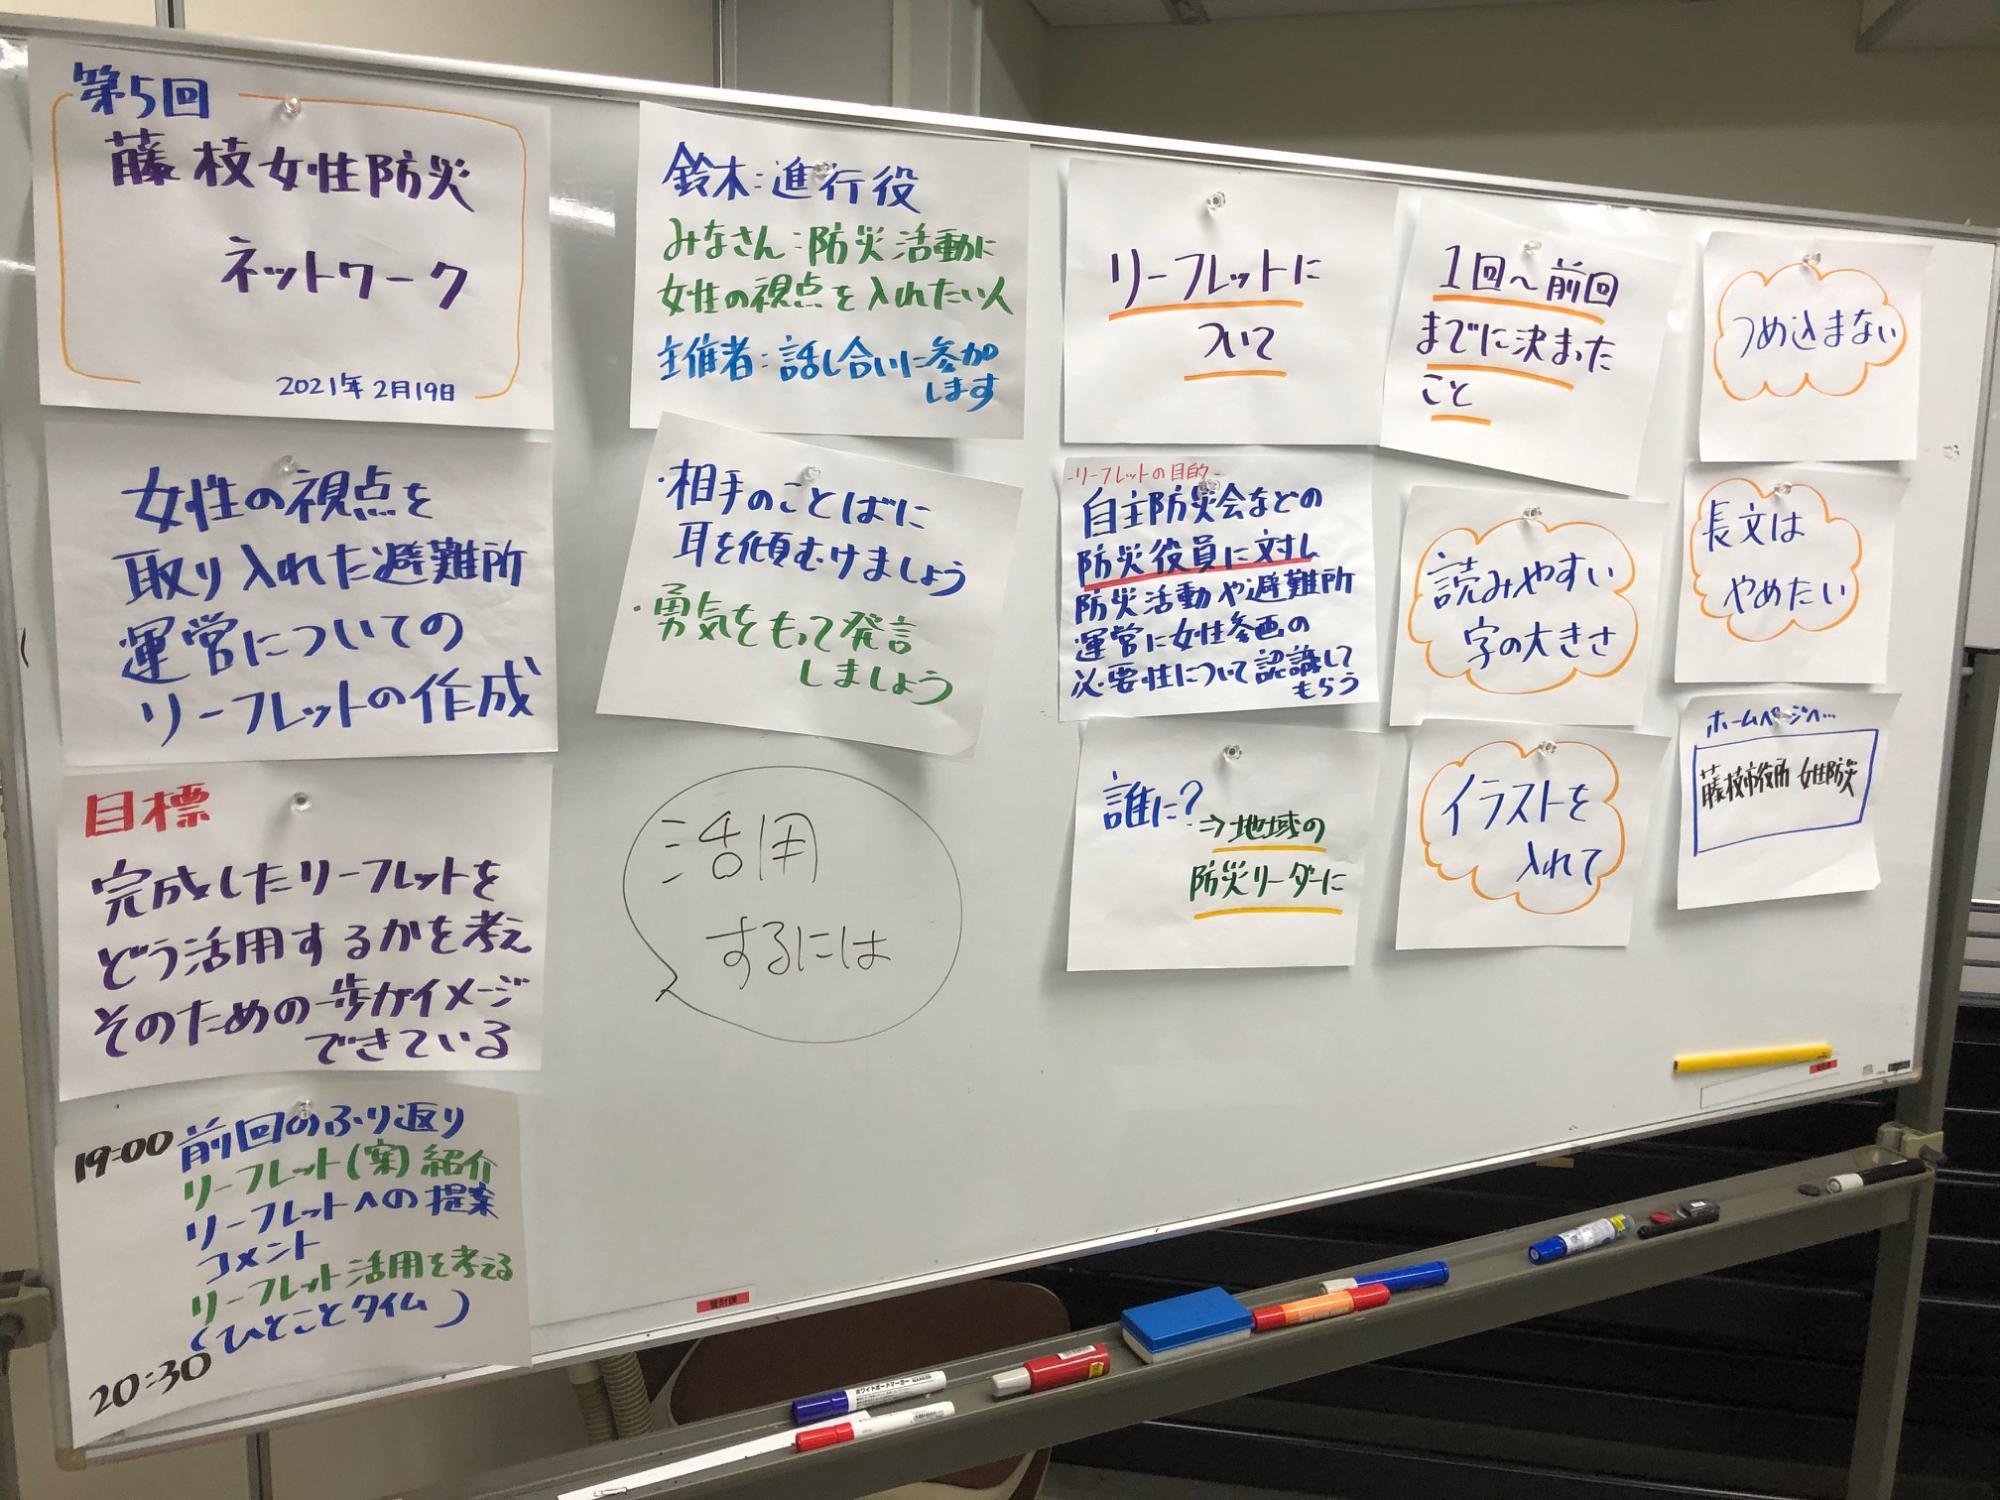 第5回
藤枝女性防災
ネットワーク
2021年2月19日
女性の視点を
取り入れた避難所
運営についての
リーフレットの作成
目標
完成したリーフレットを
どう活用するかを考え
そのための一歩がイメージ
できている
19:00 前回のふり返り
リーフレット(案)紹介
リーフレットへの提案
コメント
リーフレット活用を考える
(ひとことタイム)
20:30
鈴木:進行役
みなさん:防災活動に
女性の視点を入れたい人
主催者:話し合いに参加
します
・相手のことばに
耳を傾むけましょう
・勇気をもって発言
しましょう
活用
するには
リーフレットに
ついて
-リーフレットの目的-
自主防災会などの
防災役員に対し
防災活動や避難所
運営に女性参画の
必要性について認識して
もらう
誰に?
⇒地域の
防災リーダーに
1回〜前回
までに決まった
こと
読みやすい
字の大きさ
イラストを
入れて
つめ込まない
長文は
やめたい
ホームページへ…
藤枝市役所 女性防災
管財課
ホワイトボードマーカー